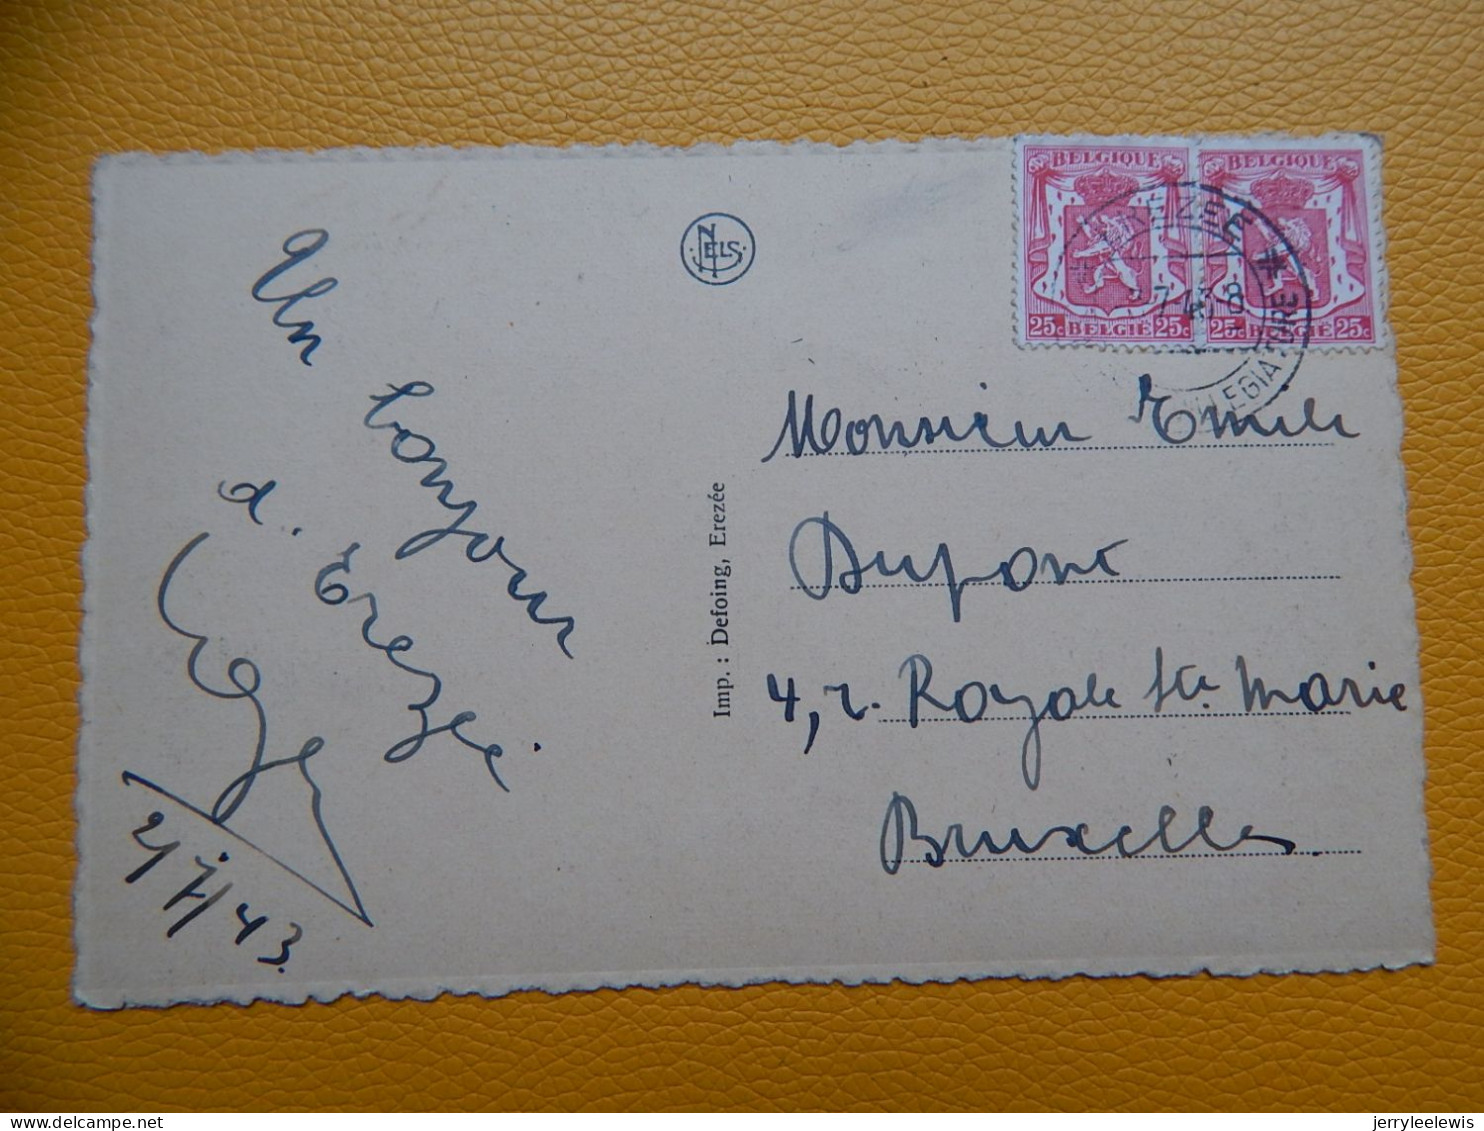 Un
bonjour
d'Erezée
2/7/43.
NELS
Imp. : Defoing, Erezée
BELGIQUE
25c BELGIË 25c
BELGIQUE
25c BELGIË 25c
EREZEE
7 43 8
VILLEGIATURE
Monsieur Emile
Dupont
4, r. Royale Ste Marie
Bruxelles
jerryleelewis